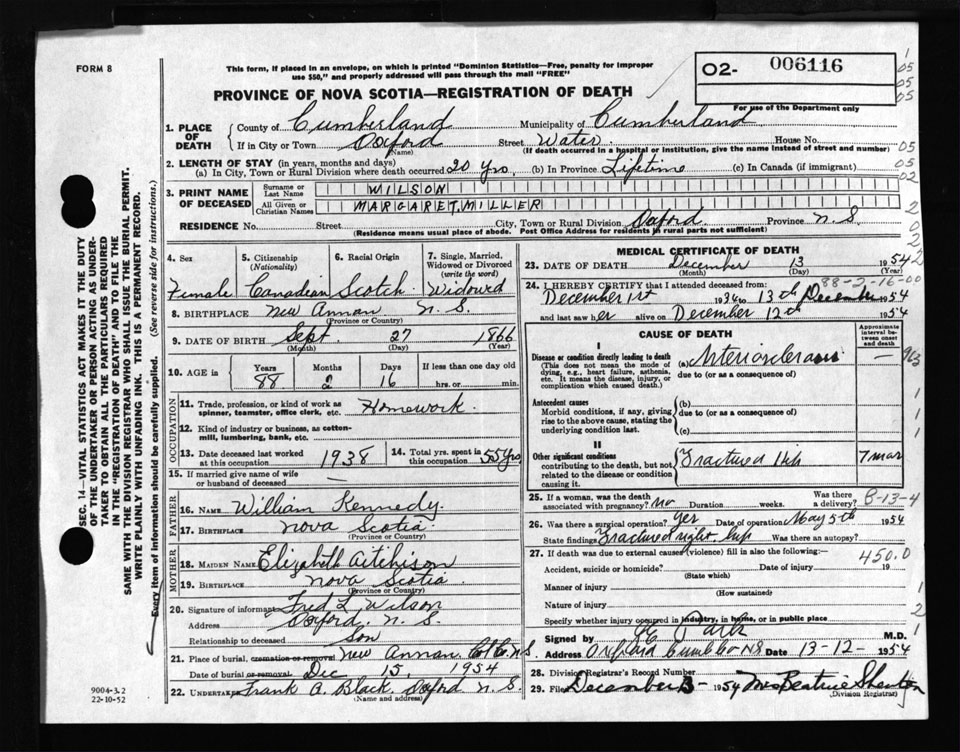 FORM 8
This form, if placed in an envelope, on which is printed "Dominion Statistics—Free, penalty for improper
use $50," and properly addressed will pass through the mail "FREE"
O2- 006116
PROVINCE OF NOVA SCOTIA—REGISTRATION OF DEATH
For use of the Department only
1. PLACE OF DEATH County of Cumberland Municipality of Cumberland
If in City or Town Oxford Street Water House No.
(Name) (If death occurred in a hospital or institution, give the name instead of street and number)
2. LENGTH OF STAY (in years, months and days)
(a) In City, Town or Rural Division where death occurred 20 yrs. (b) In Province Lifetime (c) In Canada (if immigrant)
3. PRINT NAME OF DECEASED Surname or Last Name WILSON
All Given or Christian Names MARGARET MILLER
RESIDENCE No. Street City, Town or Rural Division Oxford Province N.S.
(Residence means usual place of abode. Post Office Address for residents in rural parts not sufficient)
4. Sex Female
5. Citizenship (Nationality) Canadian
6. Racial Origin Scotch
7. Single, Married, Widowed or Divorced (write the word) Widowed
8. BIRTHPLACE New Annan N.S.
(Province or Country)
9. DATE OF BIRTH Sept. 27 1866
(Month) (Day) (Year)
10. AGE in Years 88 Months 2 Days 16 If less than one day old hrs. or min.
OCCUPATION
11. Trade, profession, or kind of work as spinner, teamster, office clerk, etc. Homework.
12. Kind of industry or business, as cotten-mill, lumbering, bank, etc.
13. Date deceased last worked at this occupation 1938
14. Total yrs. spent in this occupation 55 yrs
15. If married give name of wife or husband of deceased —
FATHER
16. Name William Kennedy.
17. Birthplace Nova Scotia
(Province or Country)
MOTHER
18. Maiden Name Elizabeth Aitchison
19. Birthplace Nova Scotia
(Province or Country)
20. Signature of informant Fred L. Wilson
Address Oxford, N.S.
Relationship to deceased Son
21. Place of burial, cremation or removal New Annan Col Co. N.S.
Date of burial or removal Dec 15, 1954
22. Undertaker Frank A. Black, Oxford N.S.
(Name and address)
MEDICAL CERTIFICATE OF DEATH
23. DATE OF DEATH December 13 1954
(Month) (Day) (Year)
88-2-16-00
24. I HEREBY CERTIFY that I attended deceased from:
December 1st to 13th December 1954
and last saw her alive on December 12th 1954
CAUSE OF DEATH
Approximate interval between onset and death
I
Disease or condition directly leading to death
(This does not mean the mode of dying, e.g., heart failure, asthenia, etc. It means the disease, injury, or complication which caused death.)
(a) Arteriosclerosis —
due to (or as a consequence of)
Antecedent causes
Morbid conditions, if any, giving rise to the above cause, stating the underlying condition last.
(b)
due to (or as a consequence of)
(c)
II
Other significant conditions
contributing to the death, but not related to the disease or condition causing it.
Fractured Hip
25. If a woman, was the death associated with pregnancy? No Duration weeks. Was there a delivery?
26. Was there a surgical operation? yes Date of operation May 5th 1954
State findings Fractured right hip Was there an autopsy?
27. If death was due to external causes (violence) fill in also the following:
450.0
Accident, suicide or homicide? Date of injury 19
(State which)
Manner of injury
(How sustained)
Nature of injury
Specify whether injury occurred in industry, in home, or in public place
Signed by Park M.D.
Address Oxford Cumb Co NS Date 13-12- 1954
28. Division Registrar's Record Number
29. Filed December 1954 Mrs Beatrice
(Division Registrar)
SEC. 14—VITAL STATISTICS ACT MAKES IT THE DUTY
OF THE UNDERTAKER OR PERSON ACTING AS UNDER-
TAKER TO OBTAIN ALL THE PARTICULARS REQUIRED
IN THE "REGISTRATION OF DEATH" AND TO FILE THE
SAME WITH THE DIVISION REGISTRAR WHO SHALL ISSUE THE BURIAL PERMIT.
WRITE PLAINLY WITH UNFADING INK. THIS IS A PERMANENT RECORD.
Every item of information should be carefully supplied. (See reverse side for instructions.)
9004-3.2
22-10-52